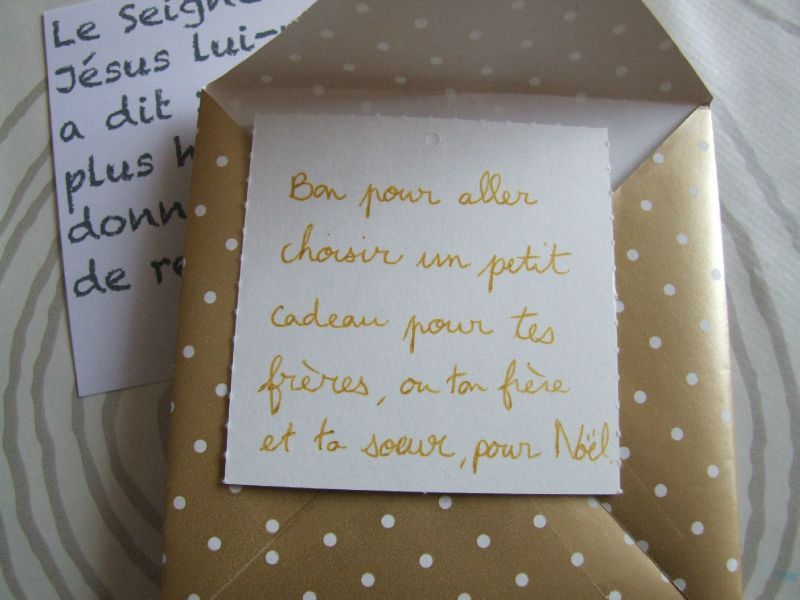 Le Seigne
Jésus lui-
a dit
plus h
donn
de re
Bon pour aller
choisir un petit
cadeau pour tes
frères, ou ton frère
et ta soeur, pour Noël.